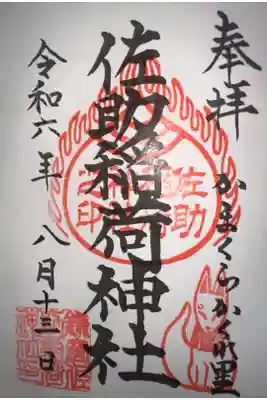 奉拝
かまくらかくれ里
佐助稲荷神社
令和六年 八月十三日
佐助